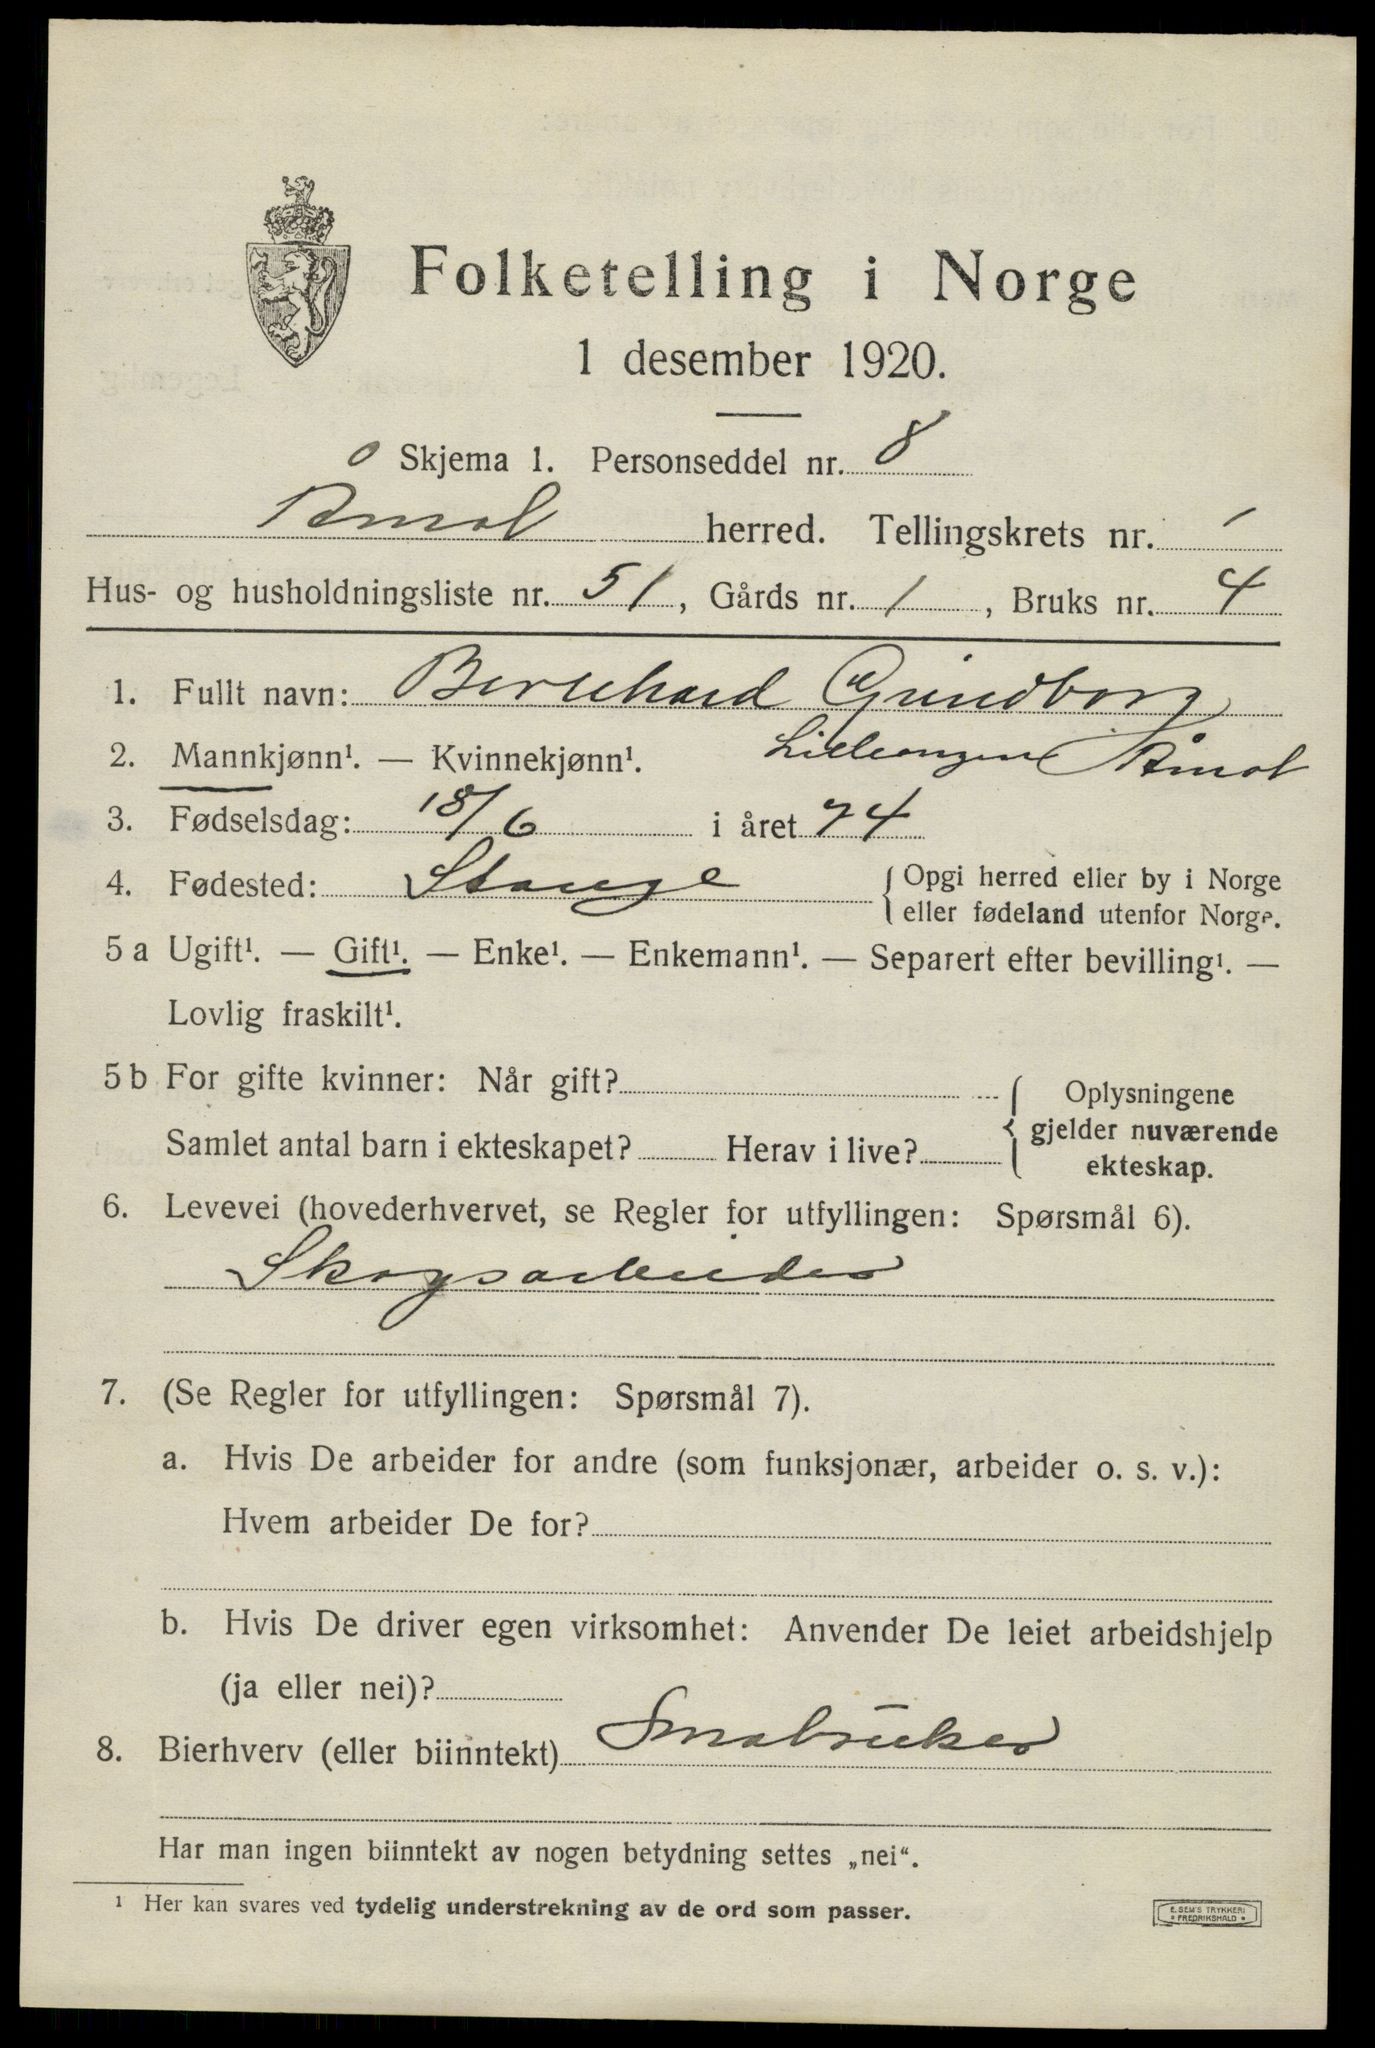 Folketelling i Norge
1 desember 1920.
Skjema 1. Personseddel nr. 8
Åmot herred. Tellingskrets nr. 1
Hus- og husholdningsliste nr. 51, Gårds nr. 1, Bruks nr. 4
1. Fullt navn: Bernhard Grindborg
2. Mannkjønn¹. — Kvinnekjønn¹. Åmot
3. Fødselsdag: 18/6 i året 74
4. Fødested: Stange { Opgi herred eller by i Norge
eller fødeland utenfor Norge.
5 a Ugift¹. — Gift¹. — Enke¹. — Enkemann¹. — Separert efter bevilling¹. —
Lovlig fraskilt¹.
5 b For gifte kvinner: Når gift? { Oplysningene
gjelder nuværende
Samlet antal barn i ekteskapet? Herav i live? ekteskap.
6. Levevei (hovederhvervet, se Regler for utfyllingen: Spørsmål 6).
Skogsarbeider
7. (Se Regler for utfyllingen: Spørsmål 7).
a. Hvis De arbeider for andre (som funksjonær, arbeider o. s. v.):
Hvem arbeider De for?
b. Hvis De driver egen virksomhet: Anvender De leiet arbeidshjelp
(ja eller nei)?
8. Bierhverv (eller biinntekt) Smabruker
Har man ingen biinntekt av nogen betydning settes „nei“.
¹ Her kan svares ved tydelig understrekning av de ord som passer.
E. SEM'S TRYKKERI
FREDRIKSHALD